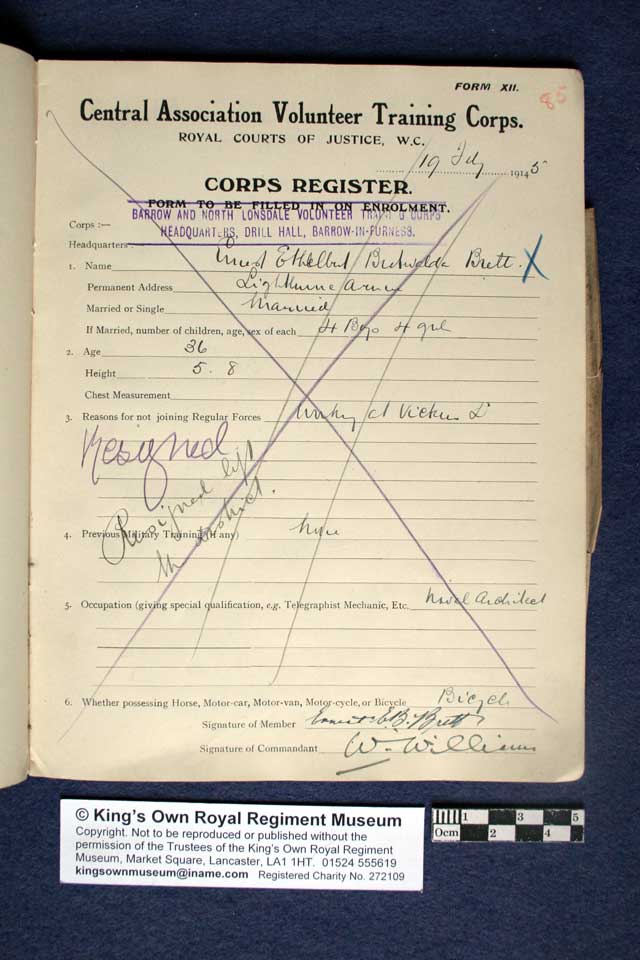 FORM XII.
85
Central Association Volunteer Training Corps.
ROYAL COURTS OF JUSTICE, W.C.
19 July 1914 5
CORPS REGISTER.
FORM TO BE FILLED IN ON ENROLMENT.
BARROW AND NORTH LONSDALE VOLUNTEER TRAIN G CORPS
Corps :—
HEADQUARTERS, DRILL HALL, BARROW-IN-FURNESS.
Headquarters
1. Name Ernest Ethelbert Bretwalda Brett. X
Permanent Address
Married or Single Married
If Married, number of children, age, sex of each 4 Boys 4 girl
2. Age 36
Height 5. 8
Chest Measurement
3. Reasons for not joining Regular Forces Working at Vickers Ld
Resigned
Resigned left
the district.
4. Previous Military Training (if any) None
5. Occupation (giving special qualification, e.g. Telegraphist Mechanic, Etc. Naval Architect
6. Whether possessing Horse, Motor-car, Motor-van, Motor-cycle, or Bicycle Bicycle
Signature of Member Ernest E.B. Brett
Signature of Commandant W. Williams
© King's Own Royal Regiment Museum
Copyright. Not to be reproduced or published without the
permission of the Trustees of the King's Own Royal Regiment
Museum, Market Square, Lancaster, LA1 1HT. 01524 555619
kingsownmuseum@iname.com Registered Charity No. 272109
1 3 5
0cm 2 4